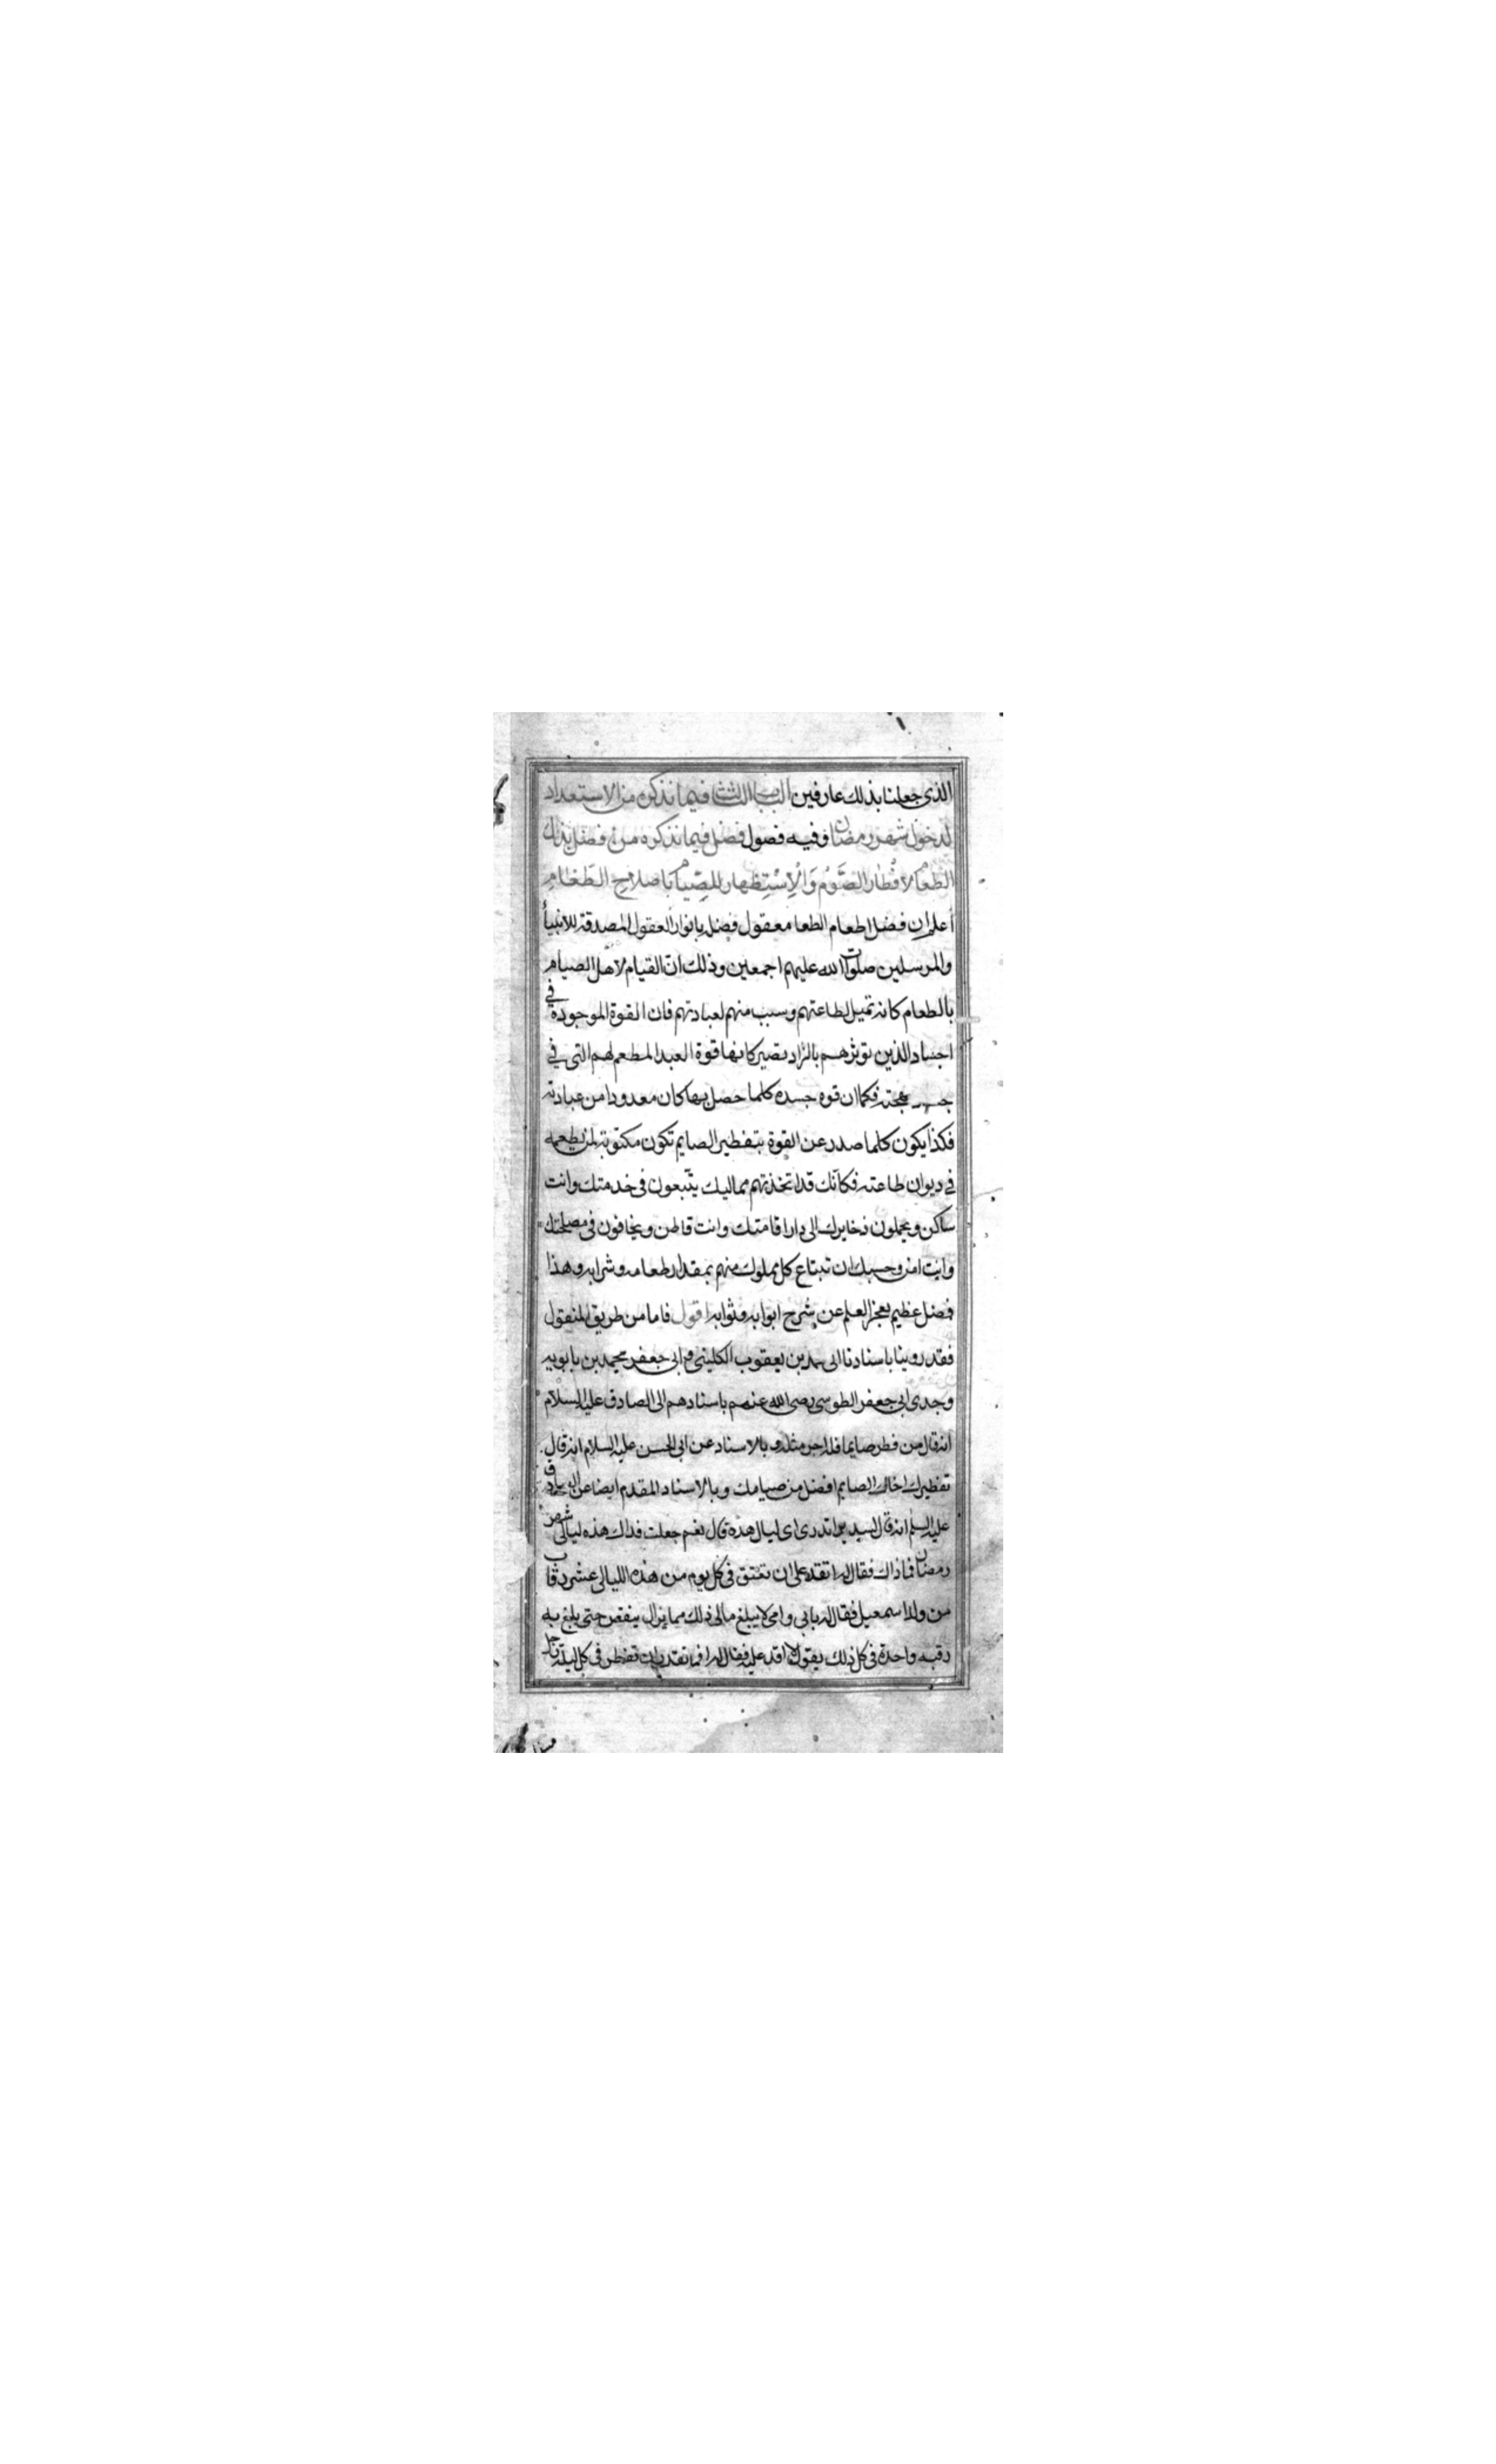 الذى جعلنا بذلك عارفين الباب الثالث فيما نذكره من الاستعداد
لدخول شهر رمضان وفيه فصول فصل فيما نذكره من فضل بذل
الطعام لافطار الصَّوم وَالاِسْتِظهار للصِّيام باصلاح الطّعام
اعلم ان فضل اطعام الطعام معقول فضله بانوار العقول المصدقة للانبيأ
والمرسلين صلوات الله عليهم اجمعين وذلك ان القيام لاهل الصيام
بالطعام كانه تميل لطاعتهم وسبب منهم لعبادتهم فان القوة الموجودة فى
اجساد الذين توثرهم بالزاد تصير كانها قوة العبد المطعم لهم التى فى
جسد مهجته فكما ان قوه جسده كلما حصل بها كان معدودا من عبادته
فكذا يكون كلما صدر عن القوة بتفطير الصايم تكون مكتوبة لمن يطعمه
فى ديوان طاعته فكانّك قد اتخذتهم مماليك يتبعون فى خدمتك وانت
ساكن ويحملون ذخايرك الى دار اقامتك وانت قاطن ويخافون فى مصلحتك
وانت امن وحسبك ان تبتاع كل مملوك منهم بمقدار طعامه وشرابه وهذا
فضل عظيم يعجز العلم عن شرح ابوابه وثوابه اقول فاما من طريق المنقول
فقد روينا باسنادنا الى محمد بن يعقوب الكلينى وابى جعفر محمد بن بابويه
وجدى ابى جعفر الطوسى رضى الله عنهم باسنادهم الى الصادق عليه السلام
انه قال من فطر صايما فله اجر مثله وبالاسناد عن ابى الحسن عليه السلام انه قال
تفطيرك اخاك الصايم افضل من صيامك وبالاسناد المقدم ايضا عن الصادق
عليه السلم انه قال لسدير اتدرى اى ليال هذه قال نعم جعلت فداك هذه ليالى شهر
رمضان فما ذاك فقال له اتقدر على ان تعتق فى كل يوم من هذه الليالى عشر رقاب
من ولد اسمعيل فقال له بابى وامى لا يبلغ مالى ذلك مما يزال ينقص حتى بلغ به
رقبه واحدة فى كل ذلك يقول لا اقدر عليه فقال له افما تقدر ان تفطر فى كل ليلة رجلا